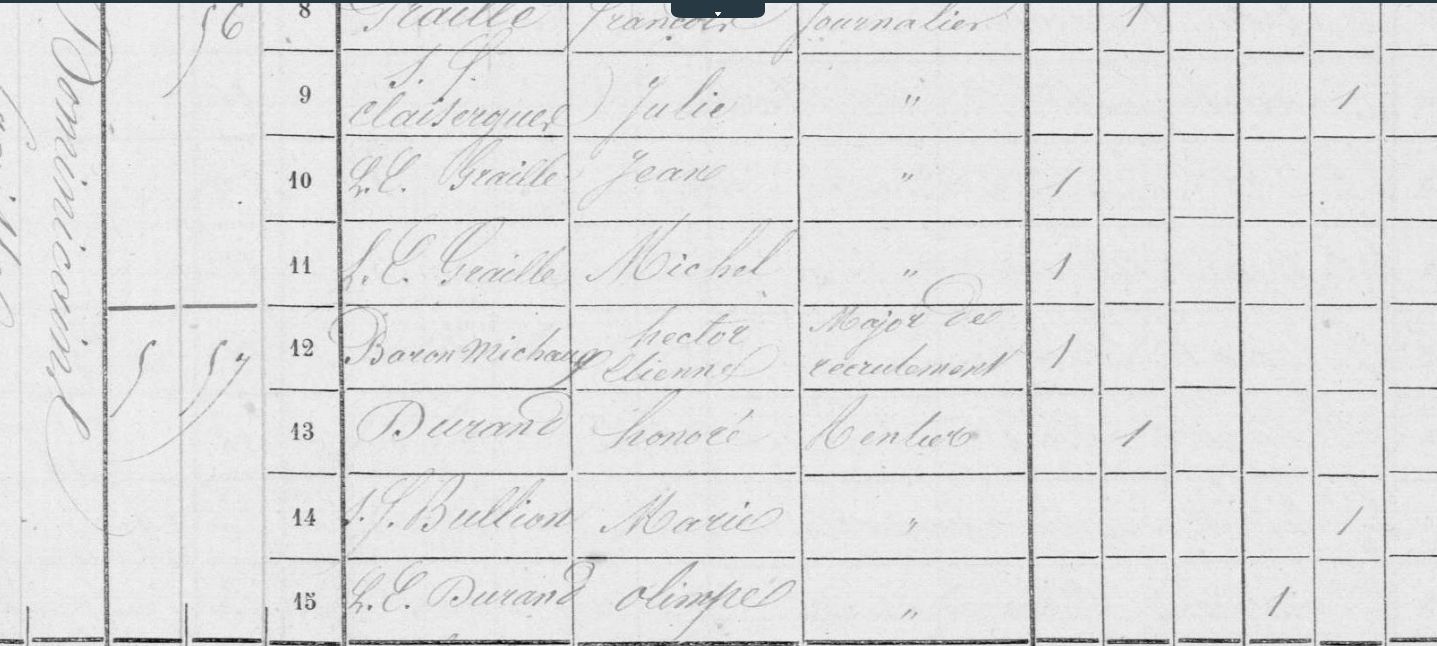 56 8 Graille François Journalier 1
9 S. F. Claisergues Julie " 1
10 L. E. Graille Jean " 1
11 L. E. Graille Michel " 1
5 57 12 Baron Michaud hector Etienne Major de recrutement 1
13 Durand honoré Rentier 1
14 S. F. Bullion Marie " 1
15 L. E. Durand olimpe " 1